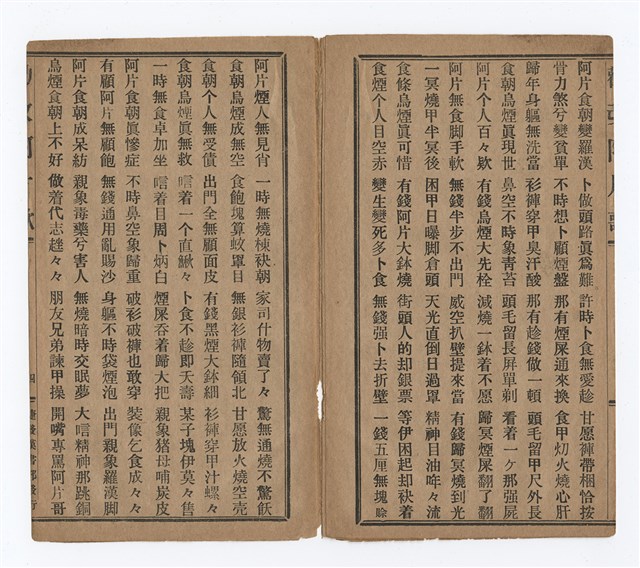 阿片食朝變羅漢　卜做頭路眞爲難　許時卜食無愛趁　甘愿褲帶梱恰按
骨力煞兮變貧單　不時想卜顧煙盤　那有煙屎通來換　食甲灯火燒心肝
歸年身軀無洗當　衫褲穿甲臭汗酸　那有趁錢做一頓　頭毛留甲尺外長
食朝烏煙眞現世　鼻空不時象靑苔　頭毛留長屏單剃　看着一ケ那强屍
阿片个人百々欵　有錢烏煙大先栓　減燒一鉢着不愿　歸冥煙屎翻了翻
阿片無食脚手軟　無錢半步不出門　威空扒壁提來當　有錢歸冥燒到光
一冥燒甲半冥後　困甲日曝脚倉頭　天光直倒日過罩　精神目油哖々流
食條烏煙眞可惜　有錢阿片大鉢燒　街頭人的却銀票　等伊困起却袂着
食煙个人目空赤　變生變死多卜食　無錢强卜去折壁　一錢五厘無塊賒
阿片煙人無見肖　一時無燒棟袂朝　家司什物賣了々　驚無通燒不驚飫
食朝烏煙成無空　食飽塊算蚊罩目　無銀衫褲隨領北　甘愿放火燒空壳
食朝个人無受債　出門全無顧面皮　有錢黑煙大鉢細　衫褲穿甲汁螺々
食朝烏煙眞無救　唁着一个直鰍々　卜食不趁即夭壽　某子塊伊莫々售
一時無食卓加坐　唁着目周卜炳白　煙屎吞着歸大把　親象猪母哺炭皮
阿片食朝眞慘症　不時鼻空象歸重　破衫破褲也敢穿　裝像乞食成々々
有顧阿片無顧飽　無錢通用亂賜沙　身軀不時袋煙泡　出門親象羅漢脚
阿片食朝成呆紡　親象毒藥兮害人　無燒暗時交眠夢　大唁精神那跳銅
烏煙食朝上不好　做着代志趖々々　朋友兄弟諫甲操　開嘴專罵阿片哥
四